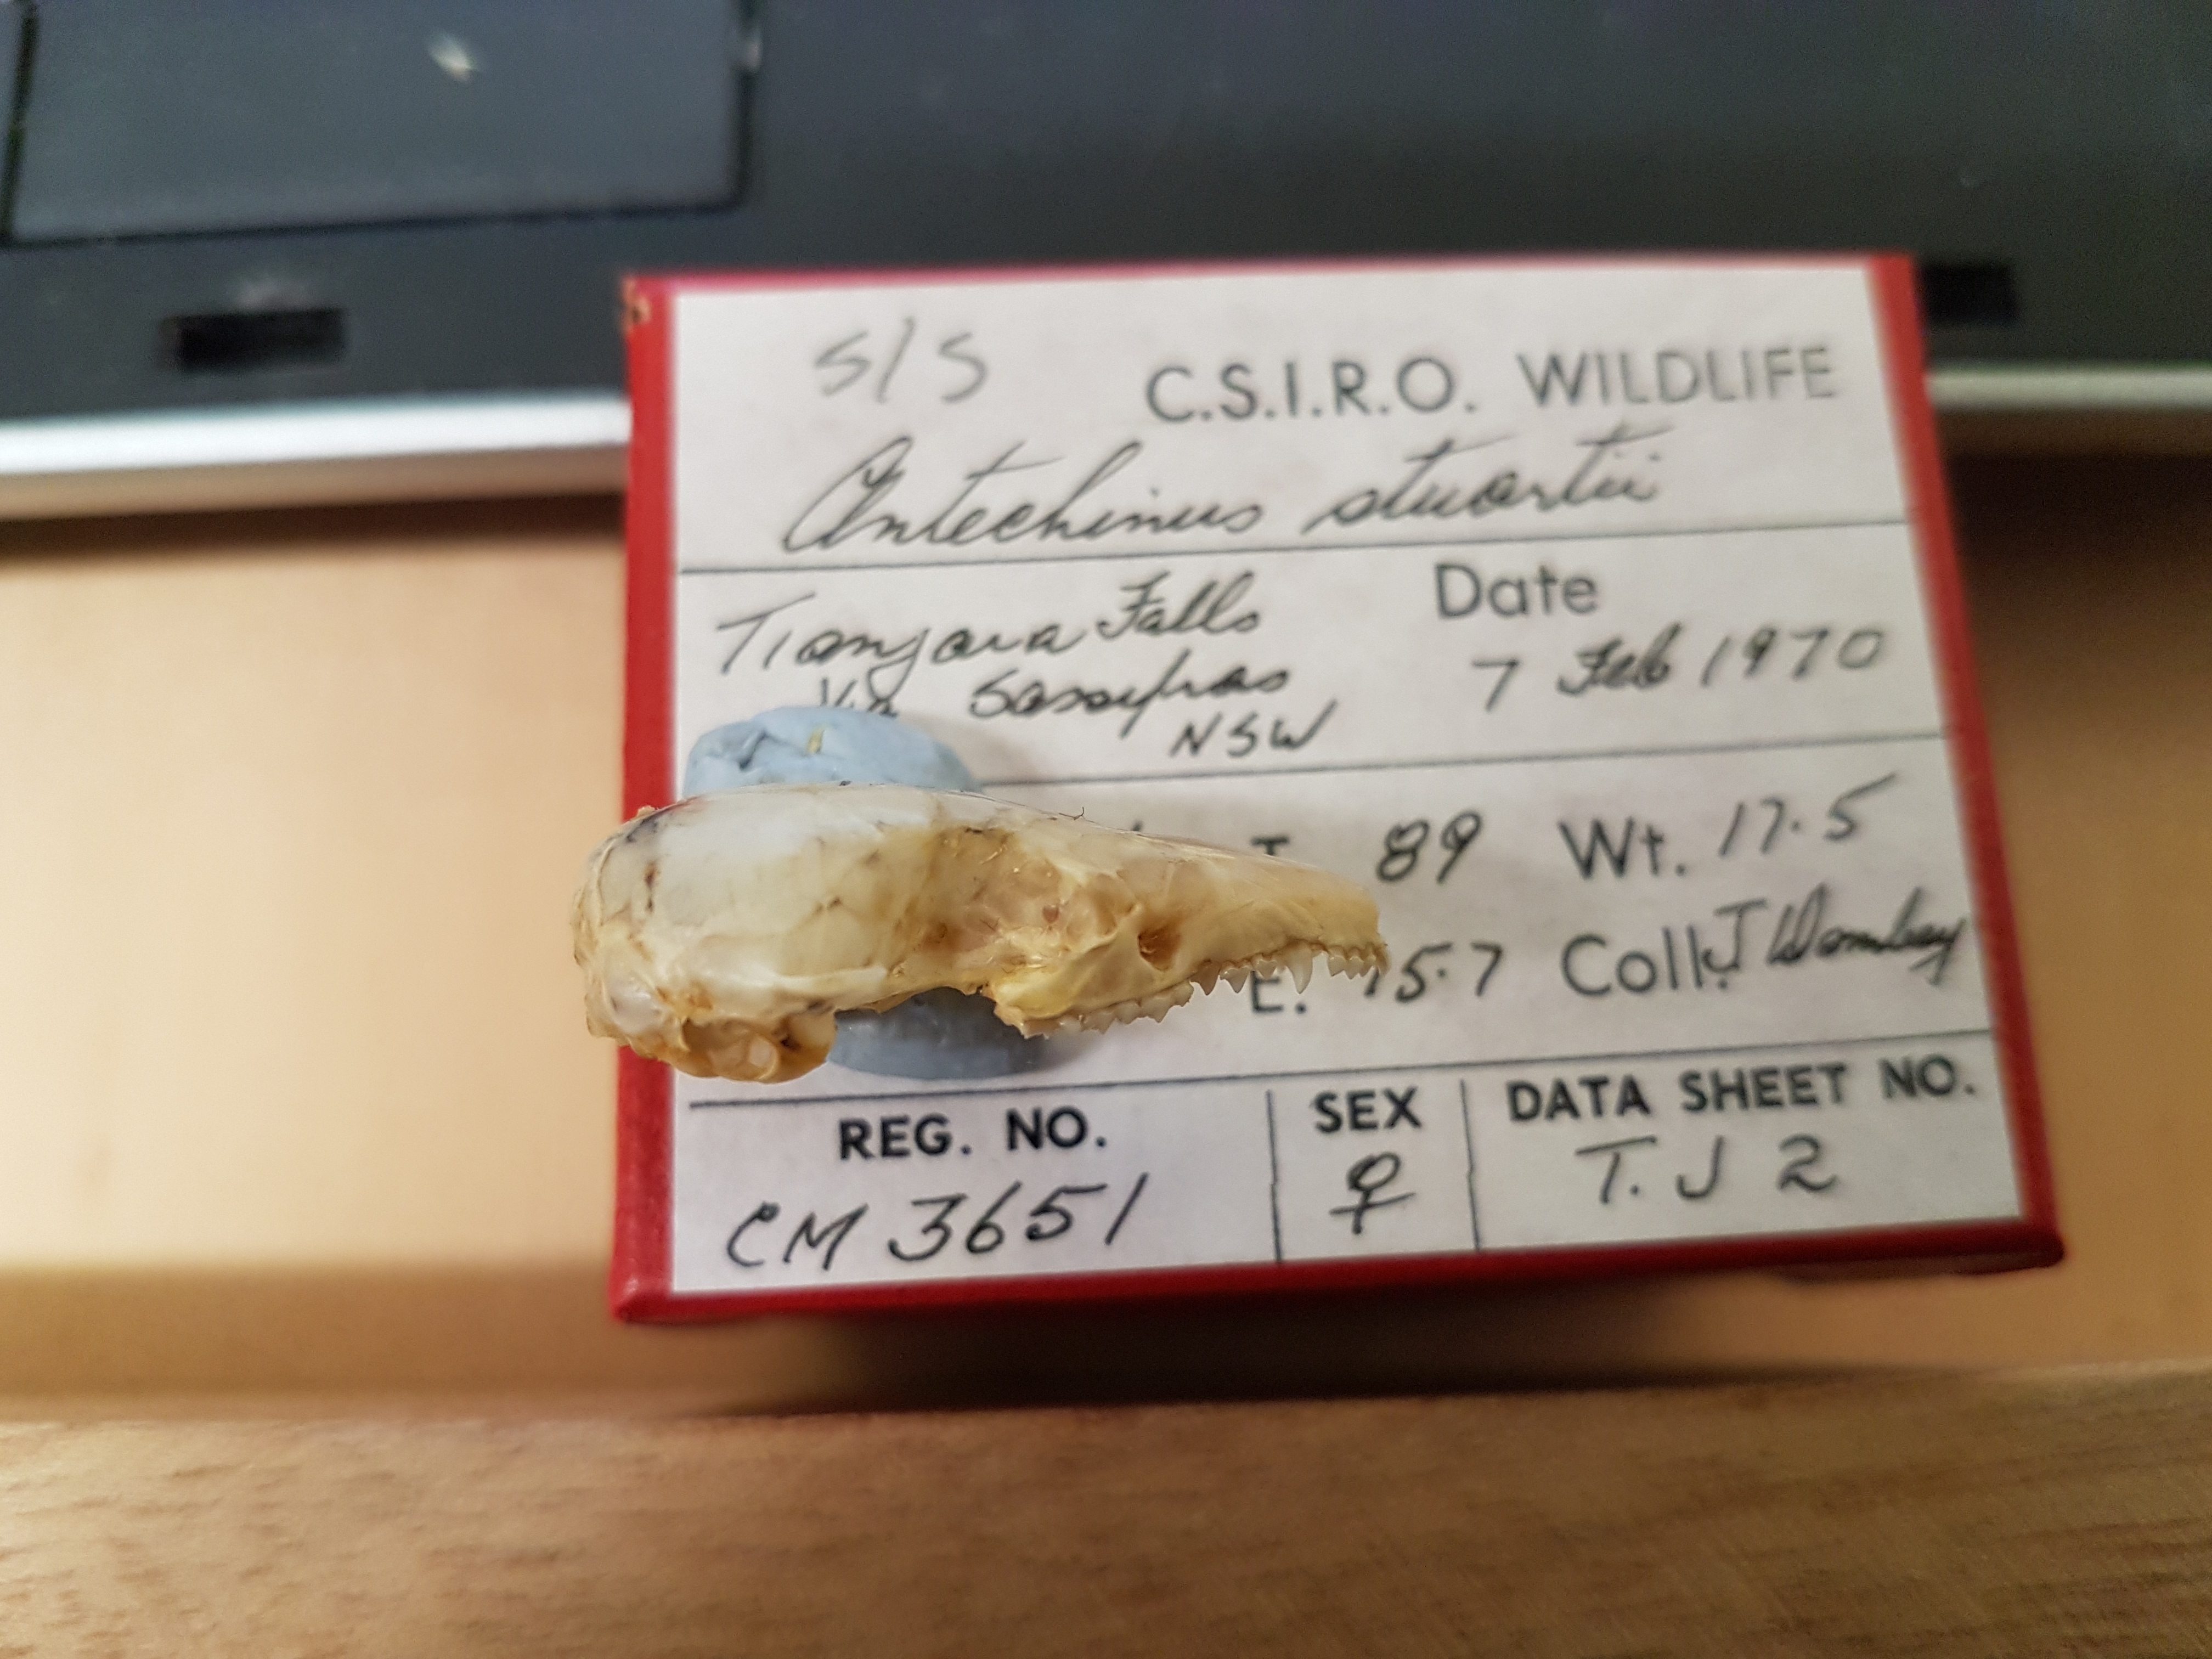 S/S C.S.I.R.O. WILDLIFE
Antechinus stuartii
Tianjara Falls Date
Via Sassafras 7 Feb 1970
NSW
T 89 Wt. 17.5
E. 15.7 Coll. J Wombey
REG. NO. SEX DATA SHEET NO.
CM 3651 ♀ T. J 2